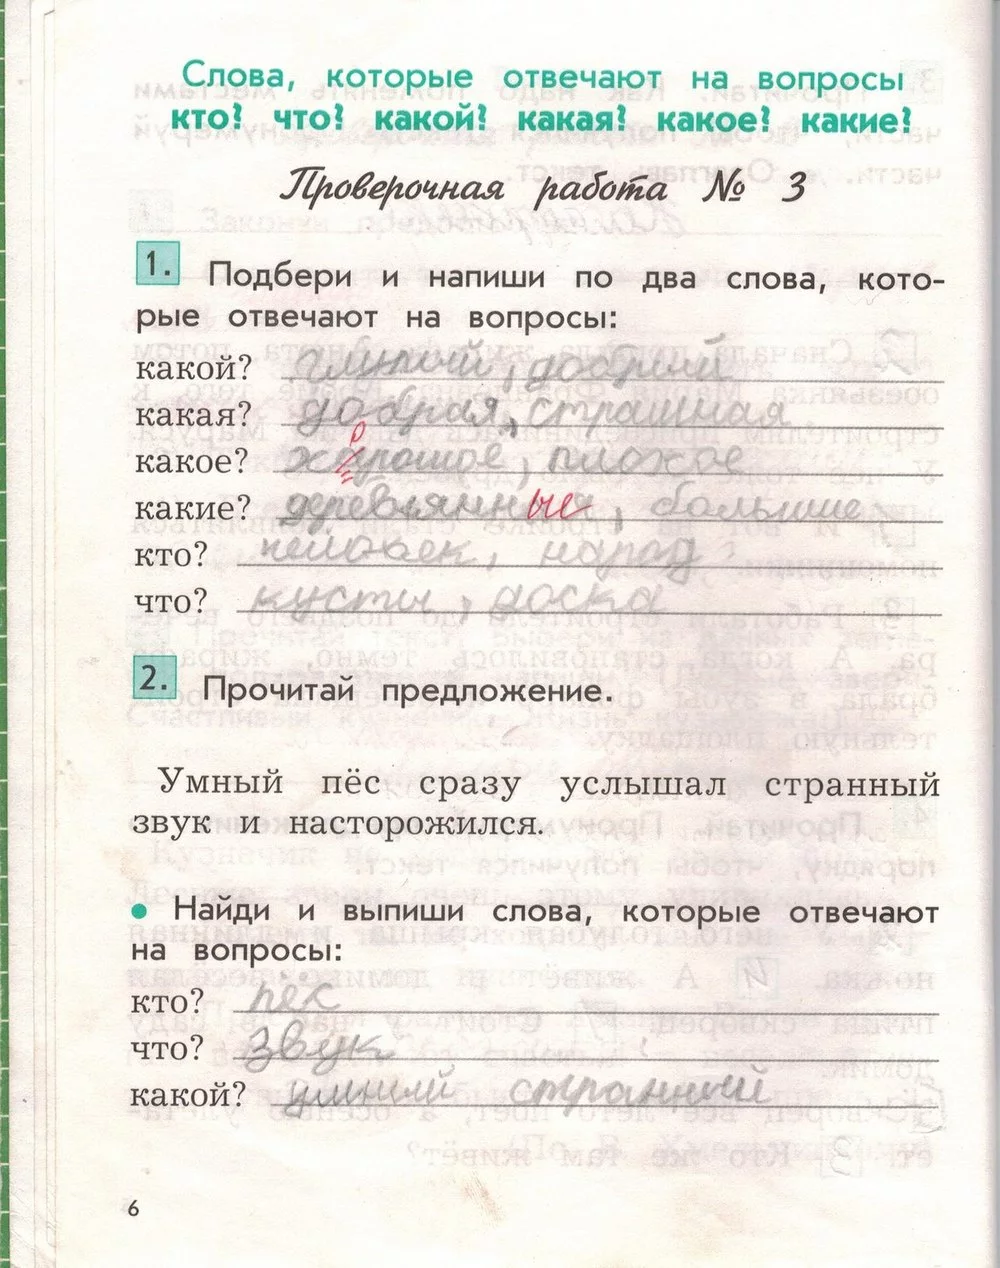 Слова, которые отвечают на вопросы
кто? что? какой? какая? какое? какие?
Проверочная работа № 3
1. Подбери и напиши по два слова, кото-
рые отвечают на вопросы:
какой? глупый, добрый
какая? добрая, страшная
какое? хорошое, плохое
какие? деревянные, большие
кто? человек, народ
что? кусты, доска
2. Прочитай предложение.
Умный пёс сразу услышал странный
звук и насторожился.
• Найди и выпиши слова, которые отвечают
на вопросы:
кто? пёс
что? звук
какой? умный странный
6